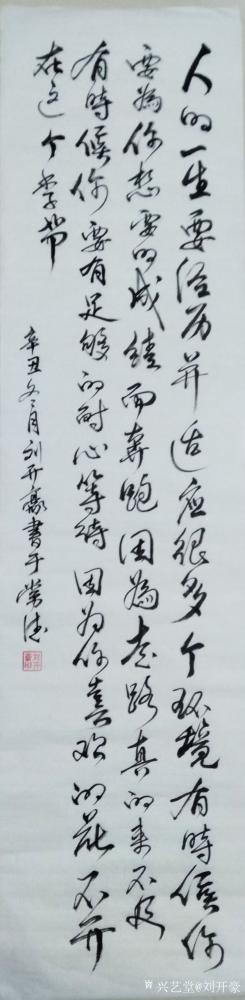 人的一生要经历并适应很多个环境有時候你
要為你想要的成績而奔跑因為走路真的来不及
有時候你要有足够的耐心等待因为你喜欢的花不开
在这个季节
辛丑冬月刘开豪書于常德
刘开豪印
兴艺堂@刘开豪